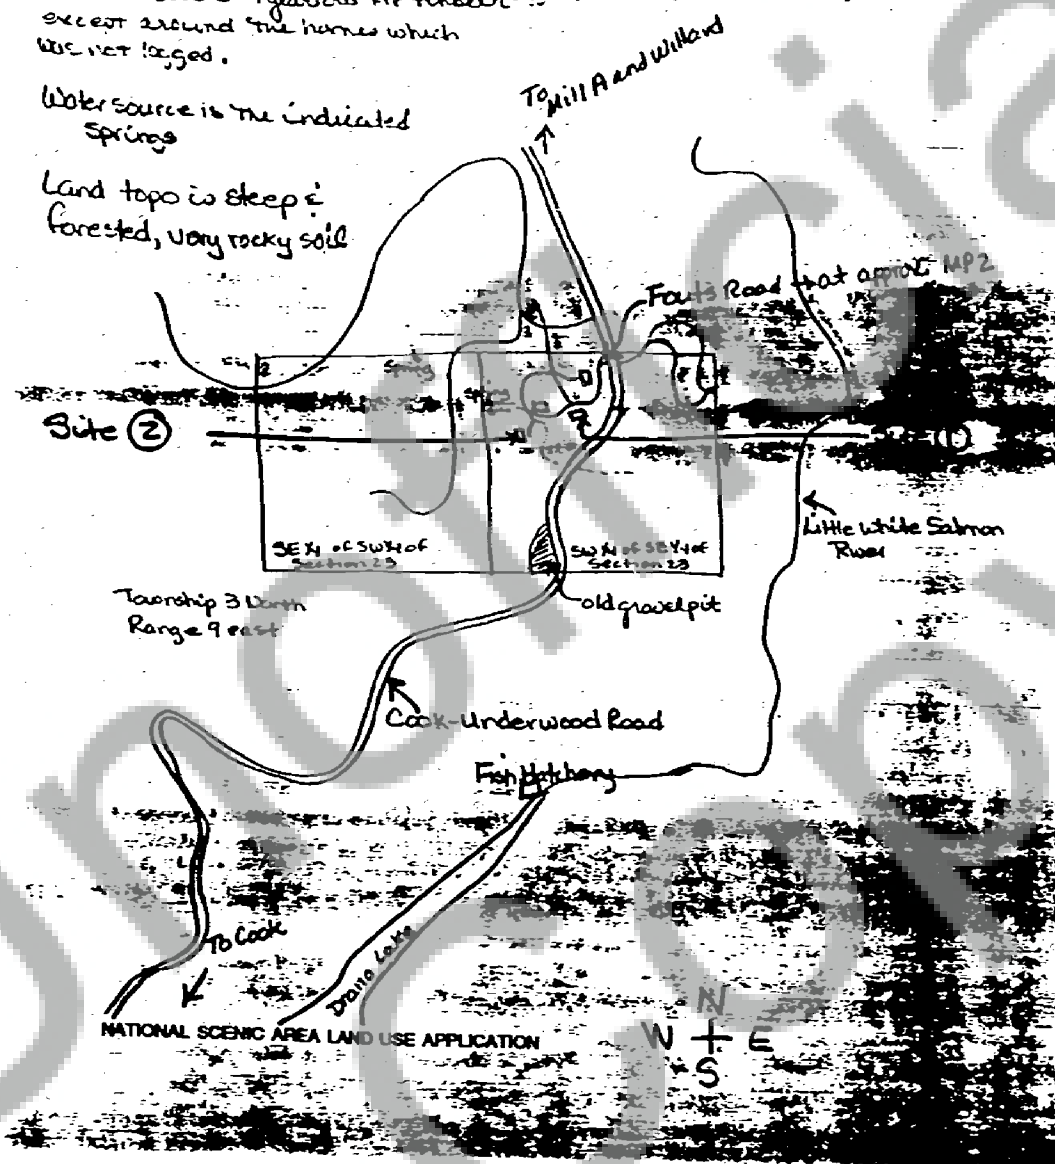 except around the homes which
was not logged.
To Mill A and Willard
Water source is the indicated
springs
Land topo is steep &
forested, very rocky soil
Fouts Road that approx MP2
Spring
Site 2
Little White Salmon
River
SE¼ of SW¼ of
Section 23
SW¼ of SE¼ of
Section 23
old gravel pit
Township 3 North
Range 9 east
Cook-Underwood Road
Fish Hatchery
To Cook
Drano Lake
NATIONAL SCENIC AREA LAND USE APPLICATION
N
W E
S
Unofficial
Copy